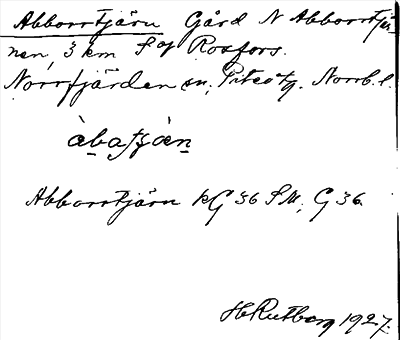 Abborrtjärn Gård N Abborrtjär-
nen, 3 km S of Rosfors.
Norrfjärden sn, Piteå tg. Norrb. l.
àbaṭjæ̀n
Abborrtjärn kG 36 SM; G 36.
H Rutberg 1927.